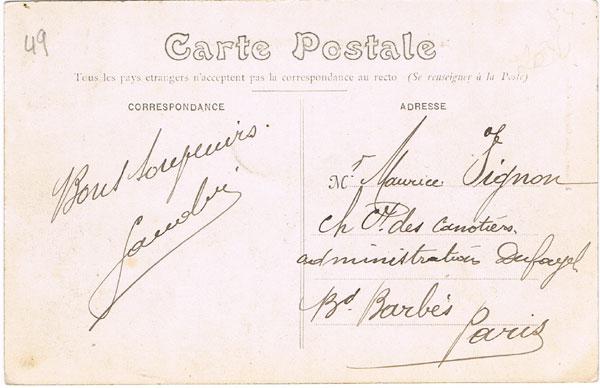 49
Carte Postale
Tous les pays etrangers n'acceptent pas la correspondance au recto (Se renseigner à la Poste)
CORRESPONDANCE
ADRESSE
Bons souvenirs.
Mr Maurice Tignon
ch des canotiers
administration Dufayel
Bd Barbès
Paris